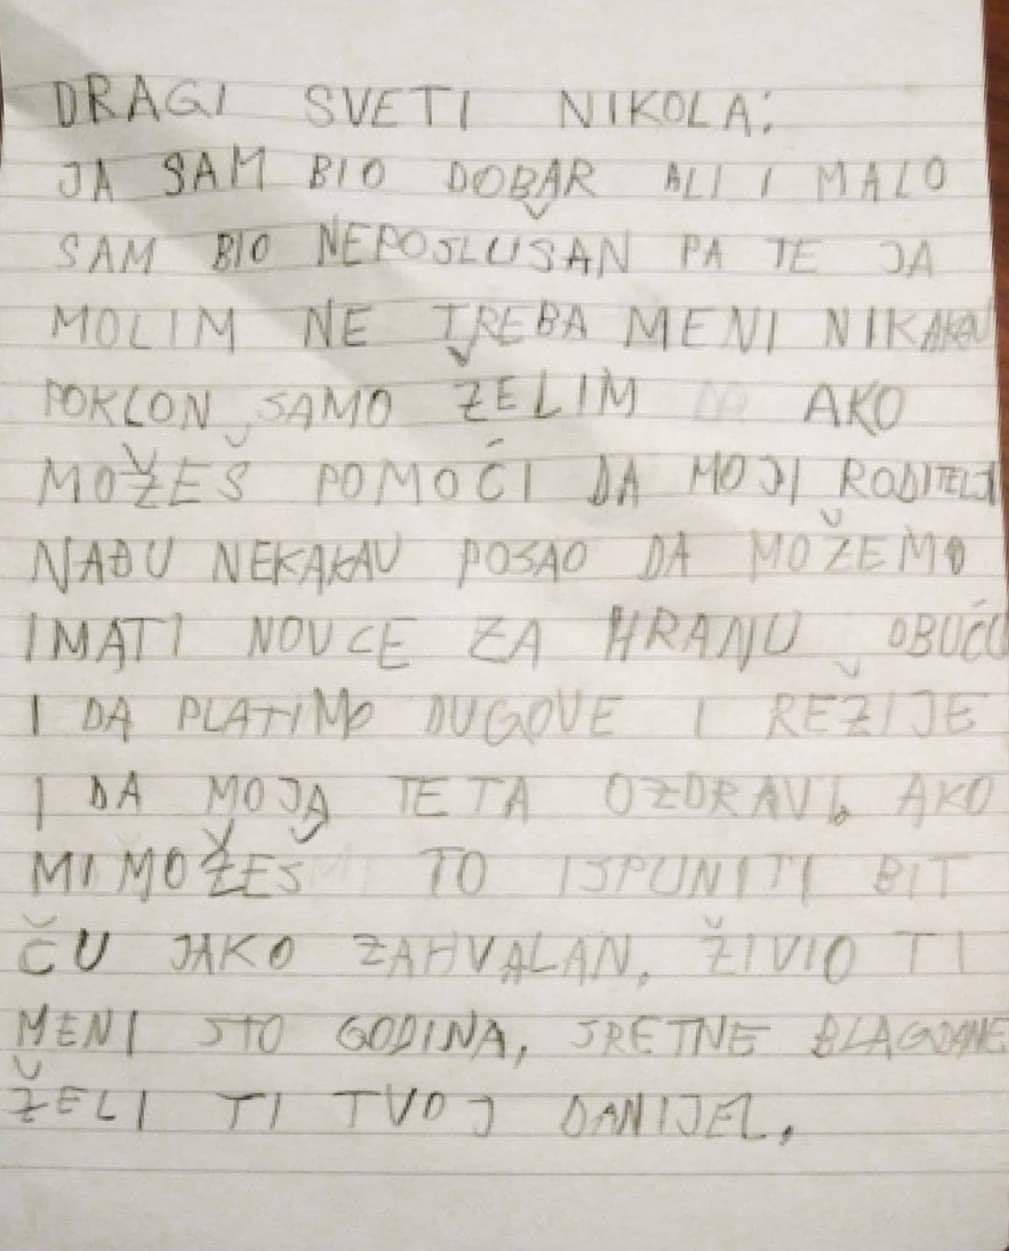 DRAGI SVETI NIKOLA:
JA SAM BIO DOBAR ALI I MALO
SAM BIO NEPOSLUŠAN PA TE JA
MOLIM NE TREBA MENI NIKAKAV
POKLON, SAMO ŽELIM AKO
MOŽEŠ POMOĆI DA MOJI RODITELJI
NAĐU NEKAKAV POSAO DA MOŽEMO
IMATI NOVCE ZA HRANU, OBUĆU
I DA PLATIMO DUGOVE I REŽIJE
I DA MOJA TETA OZDRAVI. AKO
MI MOŽEŠ TO ISPUNITI BIT
ČU JAKO ZAHVALAN, ŽIVIO TI
MENI STO GODINA, SRETNE BLAGDANE
ŽELI TI TVOJ DANIJEL.